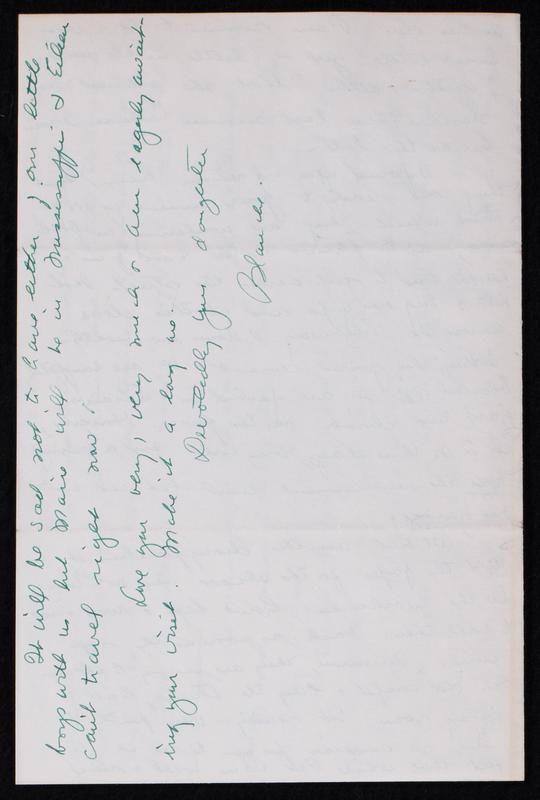 It will be sad not to have either of our little
boys with us but Marie will be in Mississippi & Eileen
can't travel right now.
Love you very, very much & am eagerly await-
ing your visit. Make it a long one.
Devotedly your daughter
Blanche.